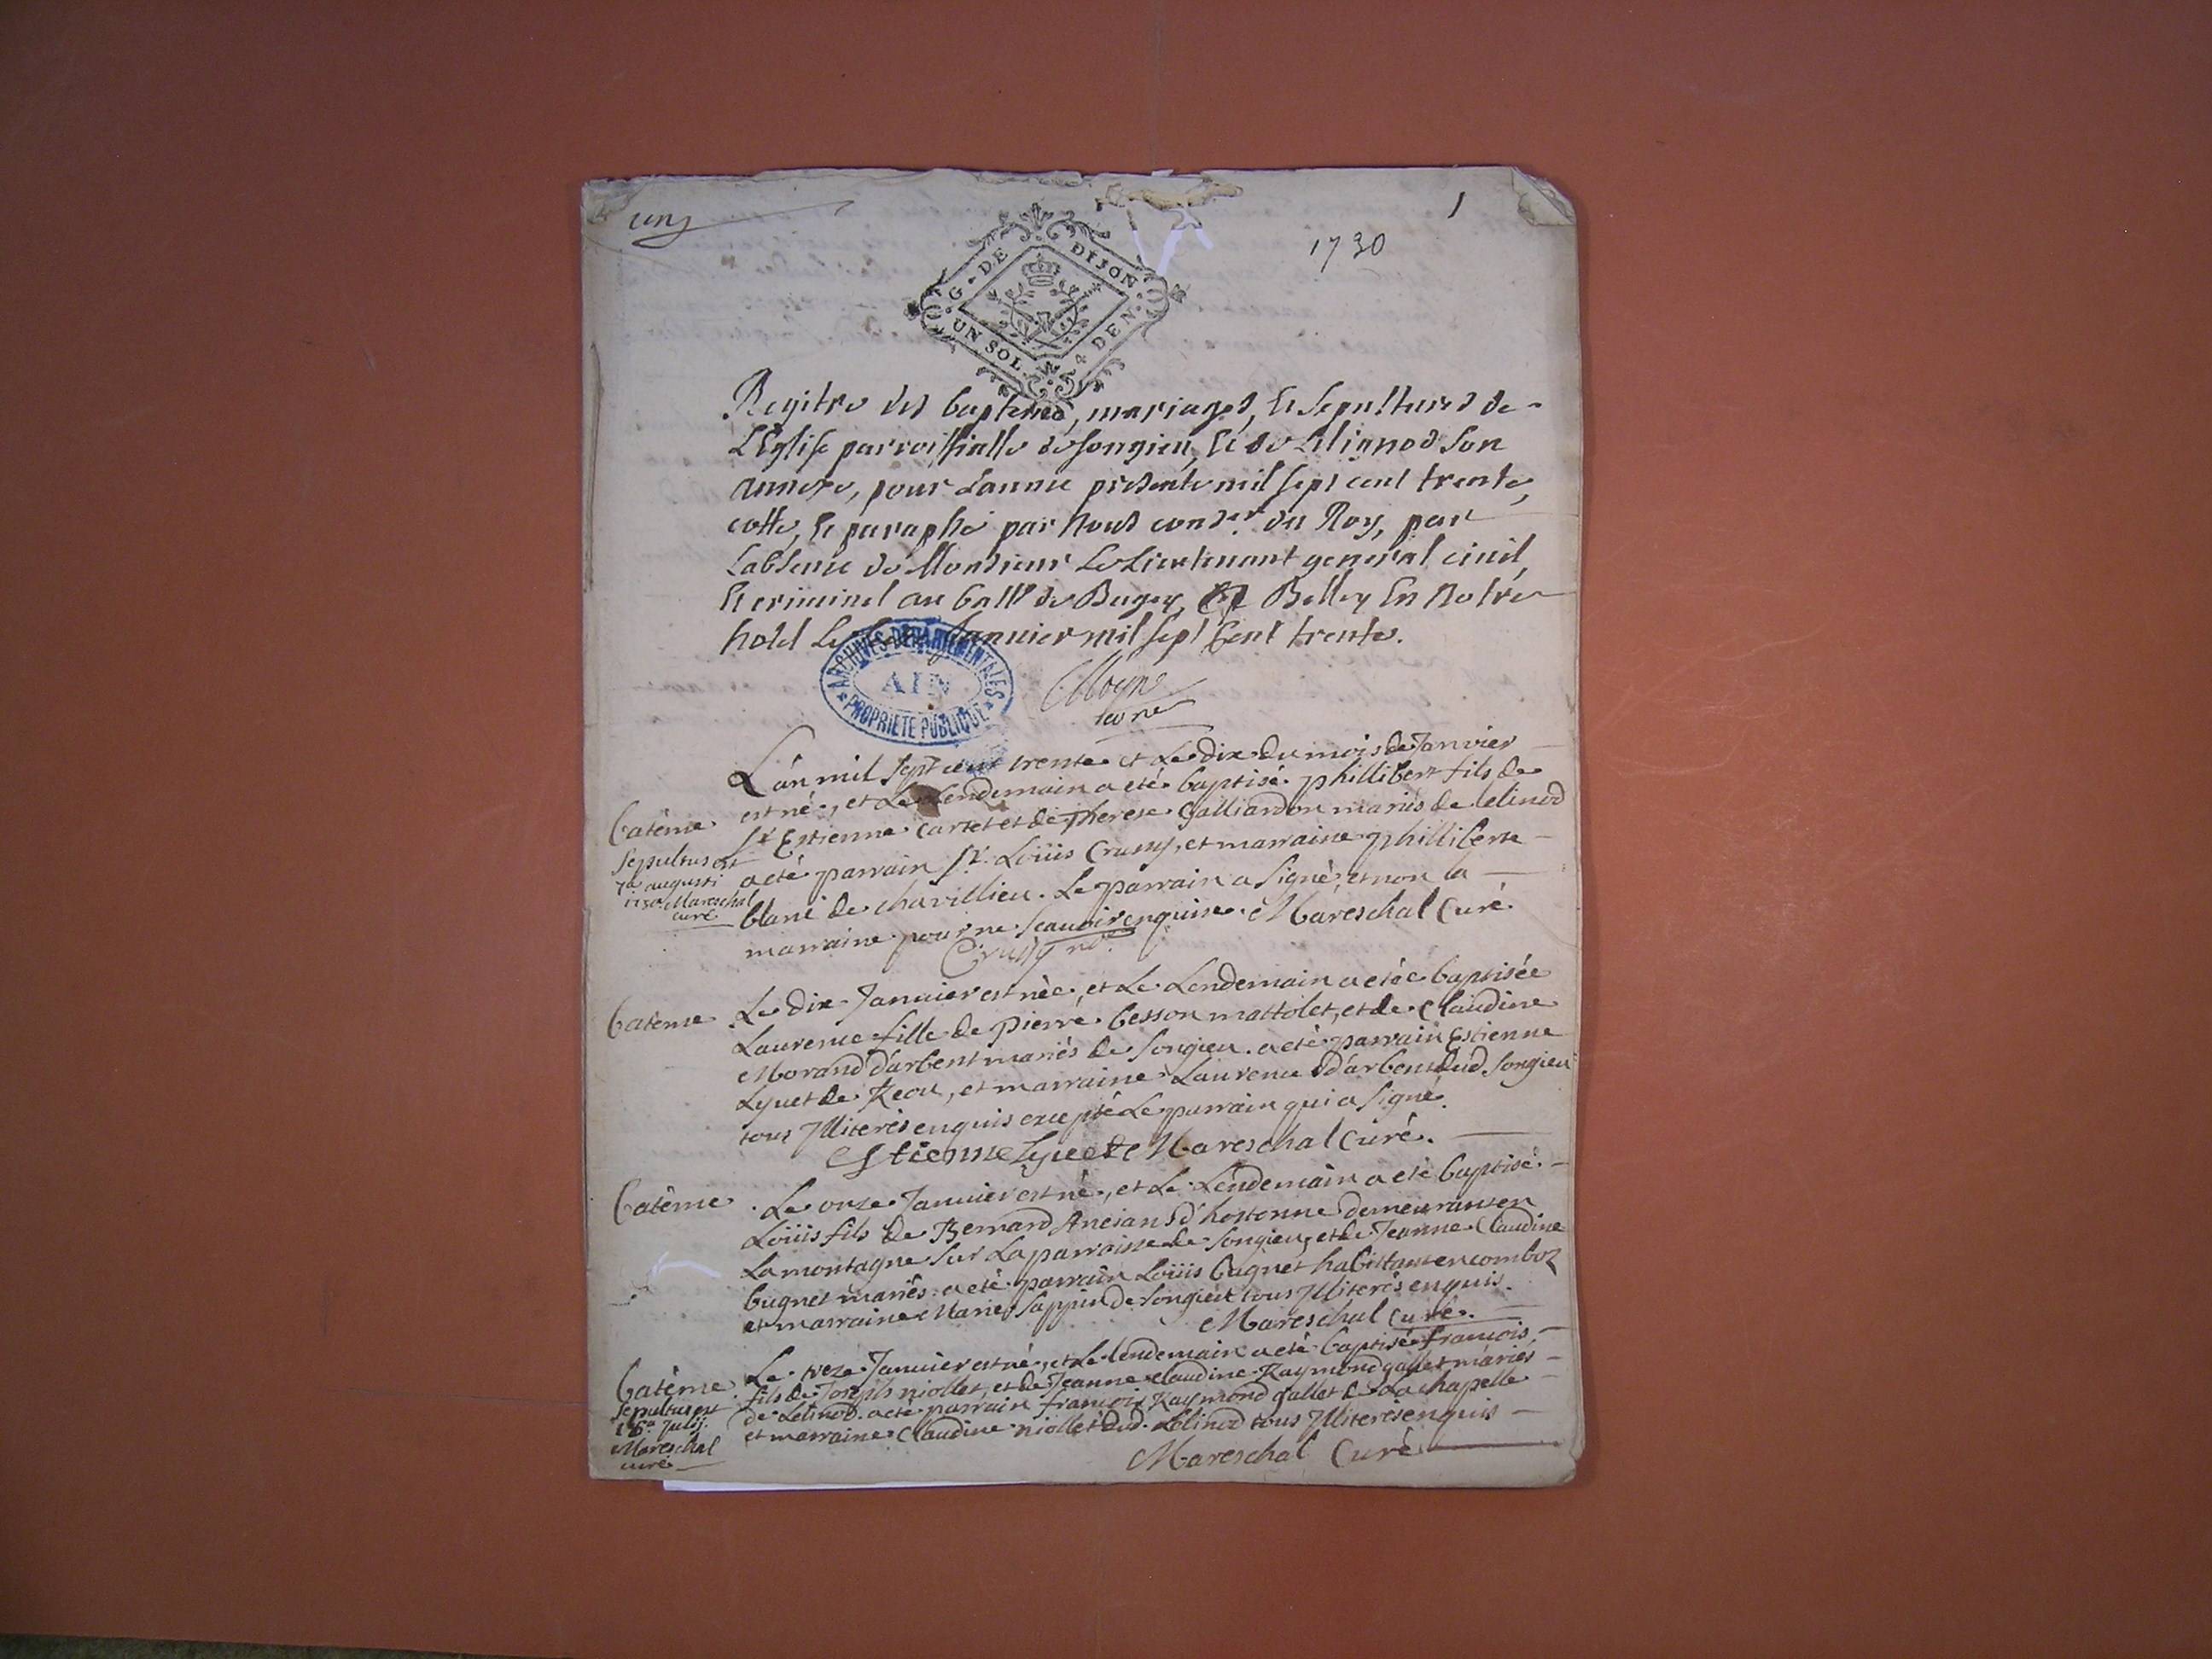 ung
1
1730
G. DE DIJON
UN SOL. 4 DEN.
Regitre des baptemes, mariages, et sepultures de
L'Eglise parroissialle de songieu, et de lilignod son
annexe, pour l'année presente mil sept cent trente,
cotté, et paraphé par Nous conser. du Roy, par
l'absence de Monsieur Le Lieutenant general civil,
et criminel au ballge de Bugey, Belley En Notre
hotel Le Janvier mil sept Cent trente.
ARCHIVES DEPARTEMENTALES
AIN
PROPRIETE PUBLIQUE
L'an mil sept cent trente et Le dix du mois de Janvier
est né, et Le Lendemain a eté baptisé phillibert fils de
Batême
Sr Estienne Cartet et de Therese Galliardon mariés de lelinod
Sepultus est
7a augusti
1730 Mareschal
curé
a eté parrain Sr. Loüis Crussy, et marraine philliberte
blanc de chavillieu. Le parrain a signé, et non la
marraine pour ne scavoir enquise. Mareschal Curé
Crussy
Batême
Le dix Janvier est née, et Le Lendemain a etée baptisée
Laurence fille de pierre besson mattolet, et de Claudine
Morand d'arbent mariés de songieu. a eté parrain Estienne
Lyuet de , et marraine Laurence d'arbent dud. songieu
tous Illiterés enquis excepté Le parrain qui a signé.
Estienne Lyuet Mareschal Curé.
Batême
Le onze Janvier est né, et Le Lendemain a eté baptisé
Loüis fils de Bernard Ancian d'hostonne demeurant en
La montagne sur La parroisse de songieu, et de Jeanne Claudine
bugnet mariés. a eté parrain Loüis bugnet habittant en comboz
et marraine Marie Sappin de songieu tous Illiterés enquis.
Mareschal Curé.
Batême
Le treze Janvier est né, et Le lendemain a eté baptisé francois,
fils de Joseph niollet, et de Jeanne claudine Raymond gallet mariés
Sepultus est
16a. Julij.
Mareschal
curé
de Lelinod. a eté parrain francois Raymond gallet de La chapelle
et marraine Claudine niollet dud. Lelinod tous Illiterés enquis
Mareschal Curé